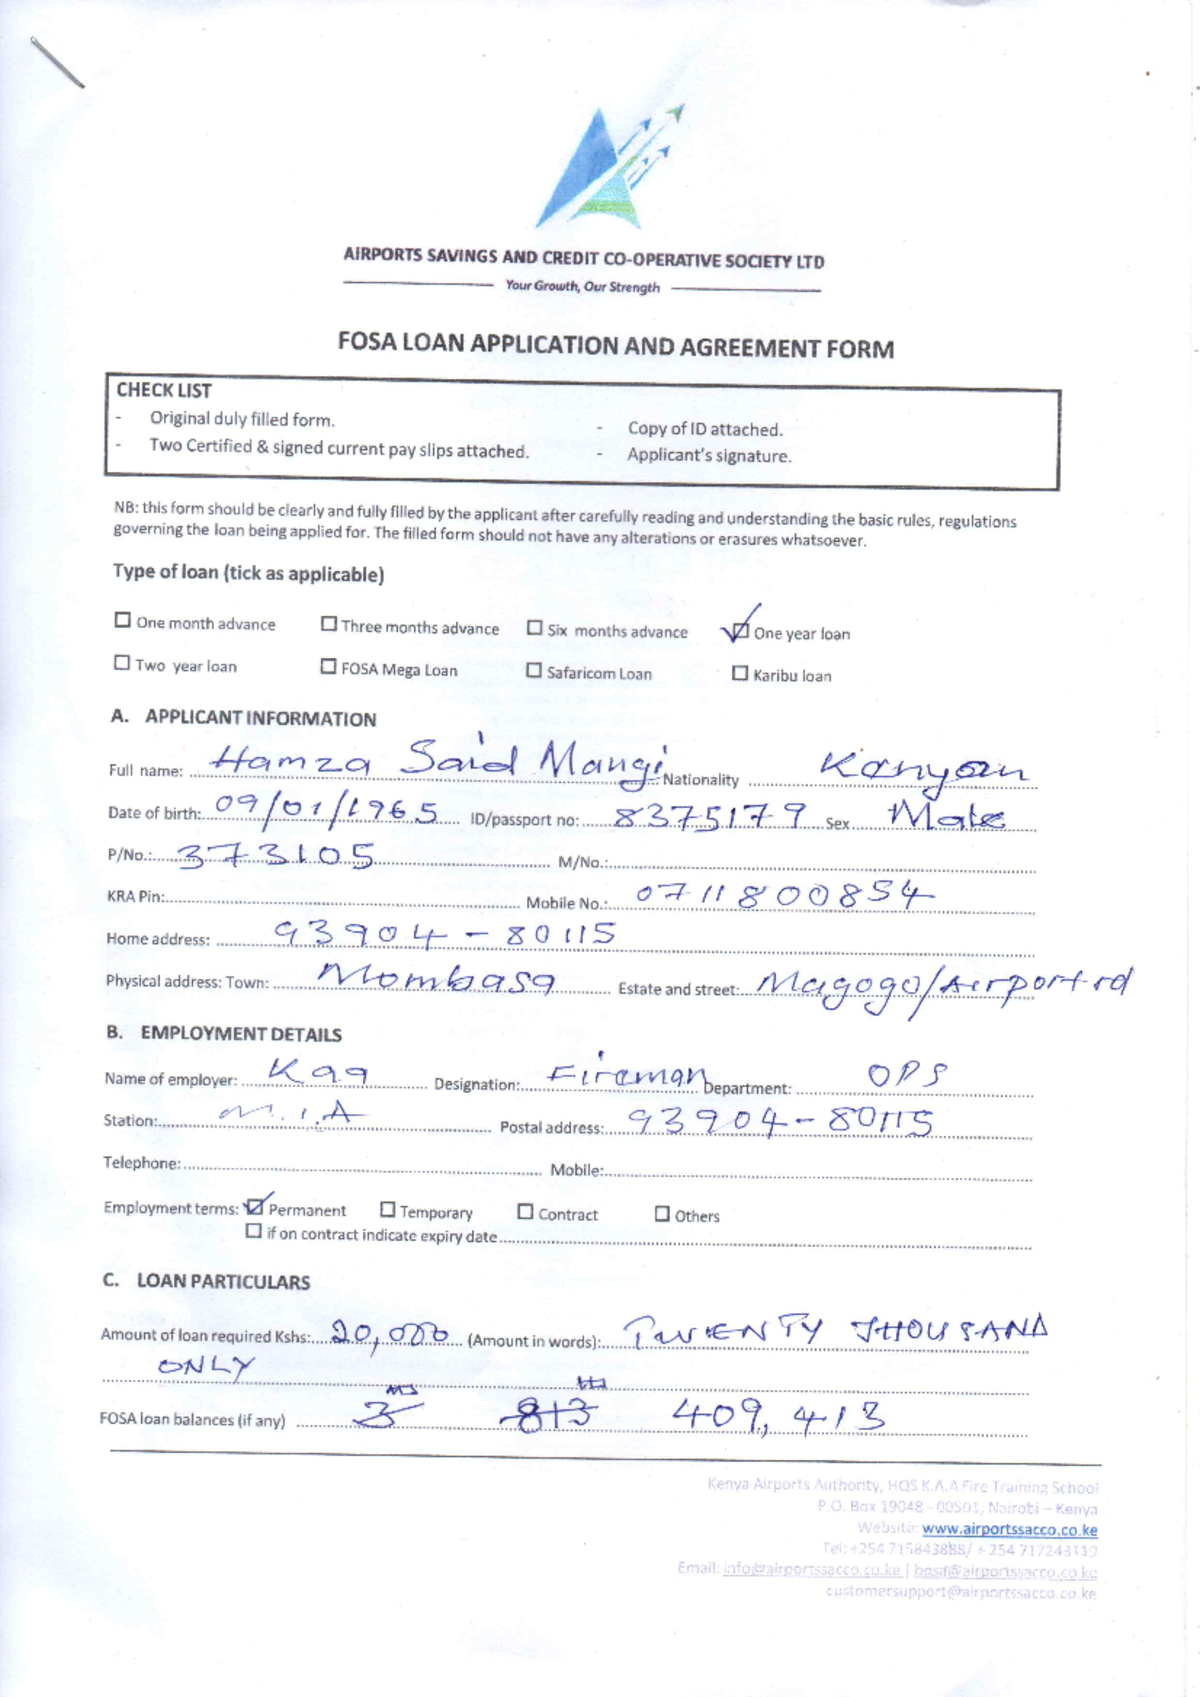 AIRPORTS SAVINGS AND CREDIT CO-OPERATIVE SOCIETY LTD
Your Growth, Our Strength
FOSA LOAN APPLICATION AND AGREEMENT FORM
CHECK LIST
- Original duly filled form. - Copy of ID attached.
- Two Certified & signed current pay slips attached. - Applicant's signature.
NB: this form should be clearly and fully filled by the applicant after carefully reading and understanding the basic rules, regulations
governing the loan being applied for. The filled form should not have any alterations or erasures whatsoever.
Type of loan (tick as applicable)
☐ One month advance ☐ Three months advance ☐ Six months advance ☑ One year loan
☐ Two year loan ☐ FOSA Mega Loan ☐ Safaricom Loan ☐ Karibu loan
A. APPLICANT INFORMATION
Full name: Hamza Said Mangi Nationality Kenyan
Date of birth: 09/01/1965 ID/passport no: 8375179 Sex Male
P/No.: 373105 M/No.:
KRA Pin: Mobile No.: 0711800854
Home address: 93904 - 80115
Physical address: Town: Mombasa Estate and street: Magogo/Airport rd
B. EMPLOYMENT DETAILS
Name of employer: Kaa Designation: Fireman Department: OPS
Station: M.I.A Postal address: 93904 - 80115
Telephone: Mobile:
Employment terms: ☑ Permanent ☐ Temporary ☐ Contract ☐ Others
☐ if on contract indicate expiry date
C. LOAN PARTICULARS
Amount of loan required Kshs: 20,000 (Amount in words): TWENTY THOUSAND
ONLY
FOSA loan balances (if any) 3 813 409,413
Kenya Airports Authority, HQS K.A.A Fire Training School
P.O. Box 19048 - 00501, Nairobi – Kenya
Website: www.airportssacco.co.ke
Tel: +254 715843888/ + 254 717243119
Email: info@airportssacco.co.ke | bosa@airportssacco.co.ke
customersupport@airportssacco.co.ke